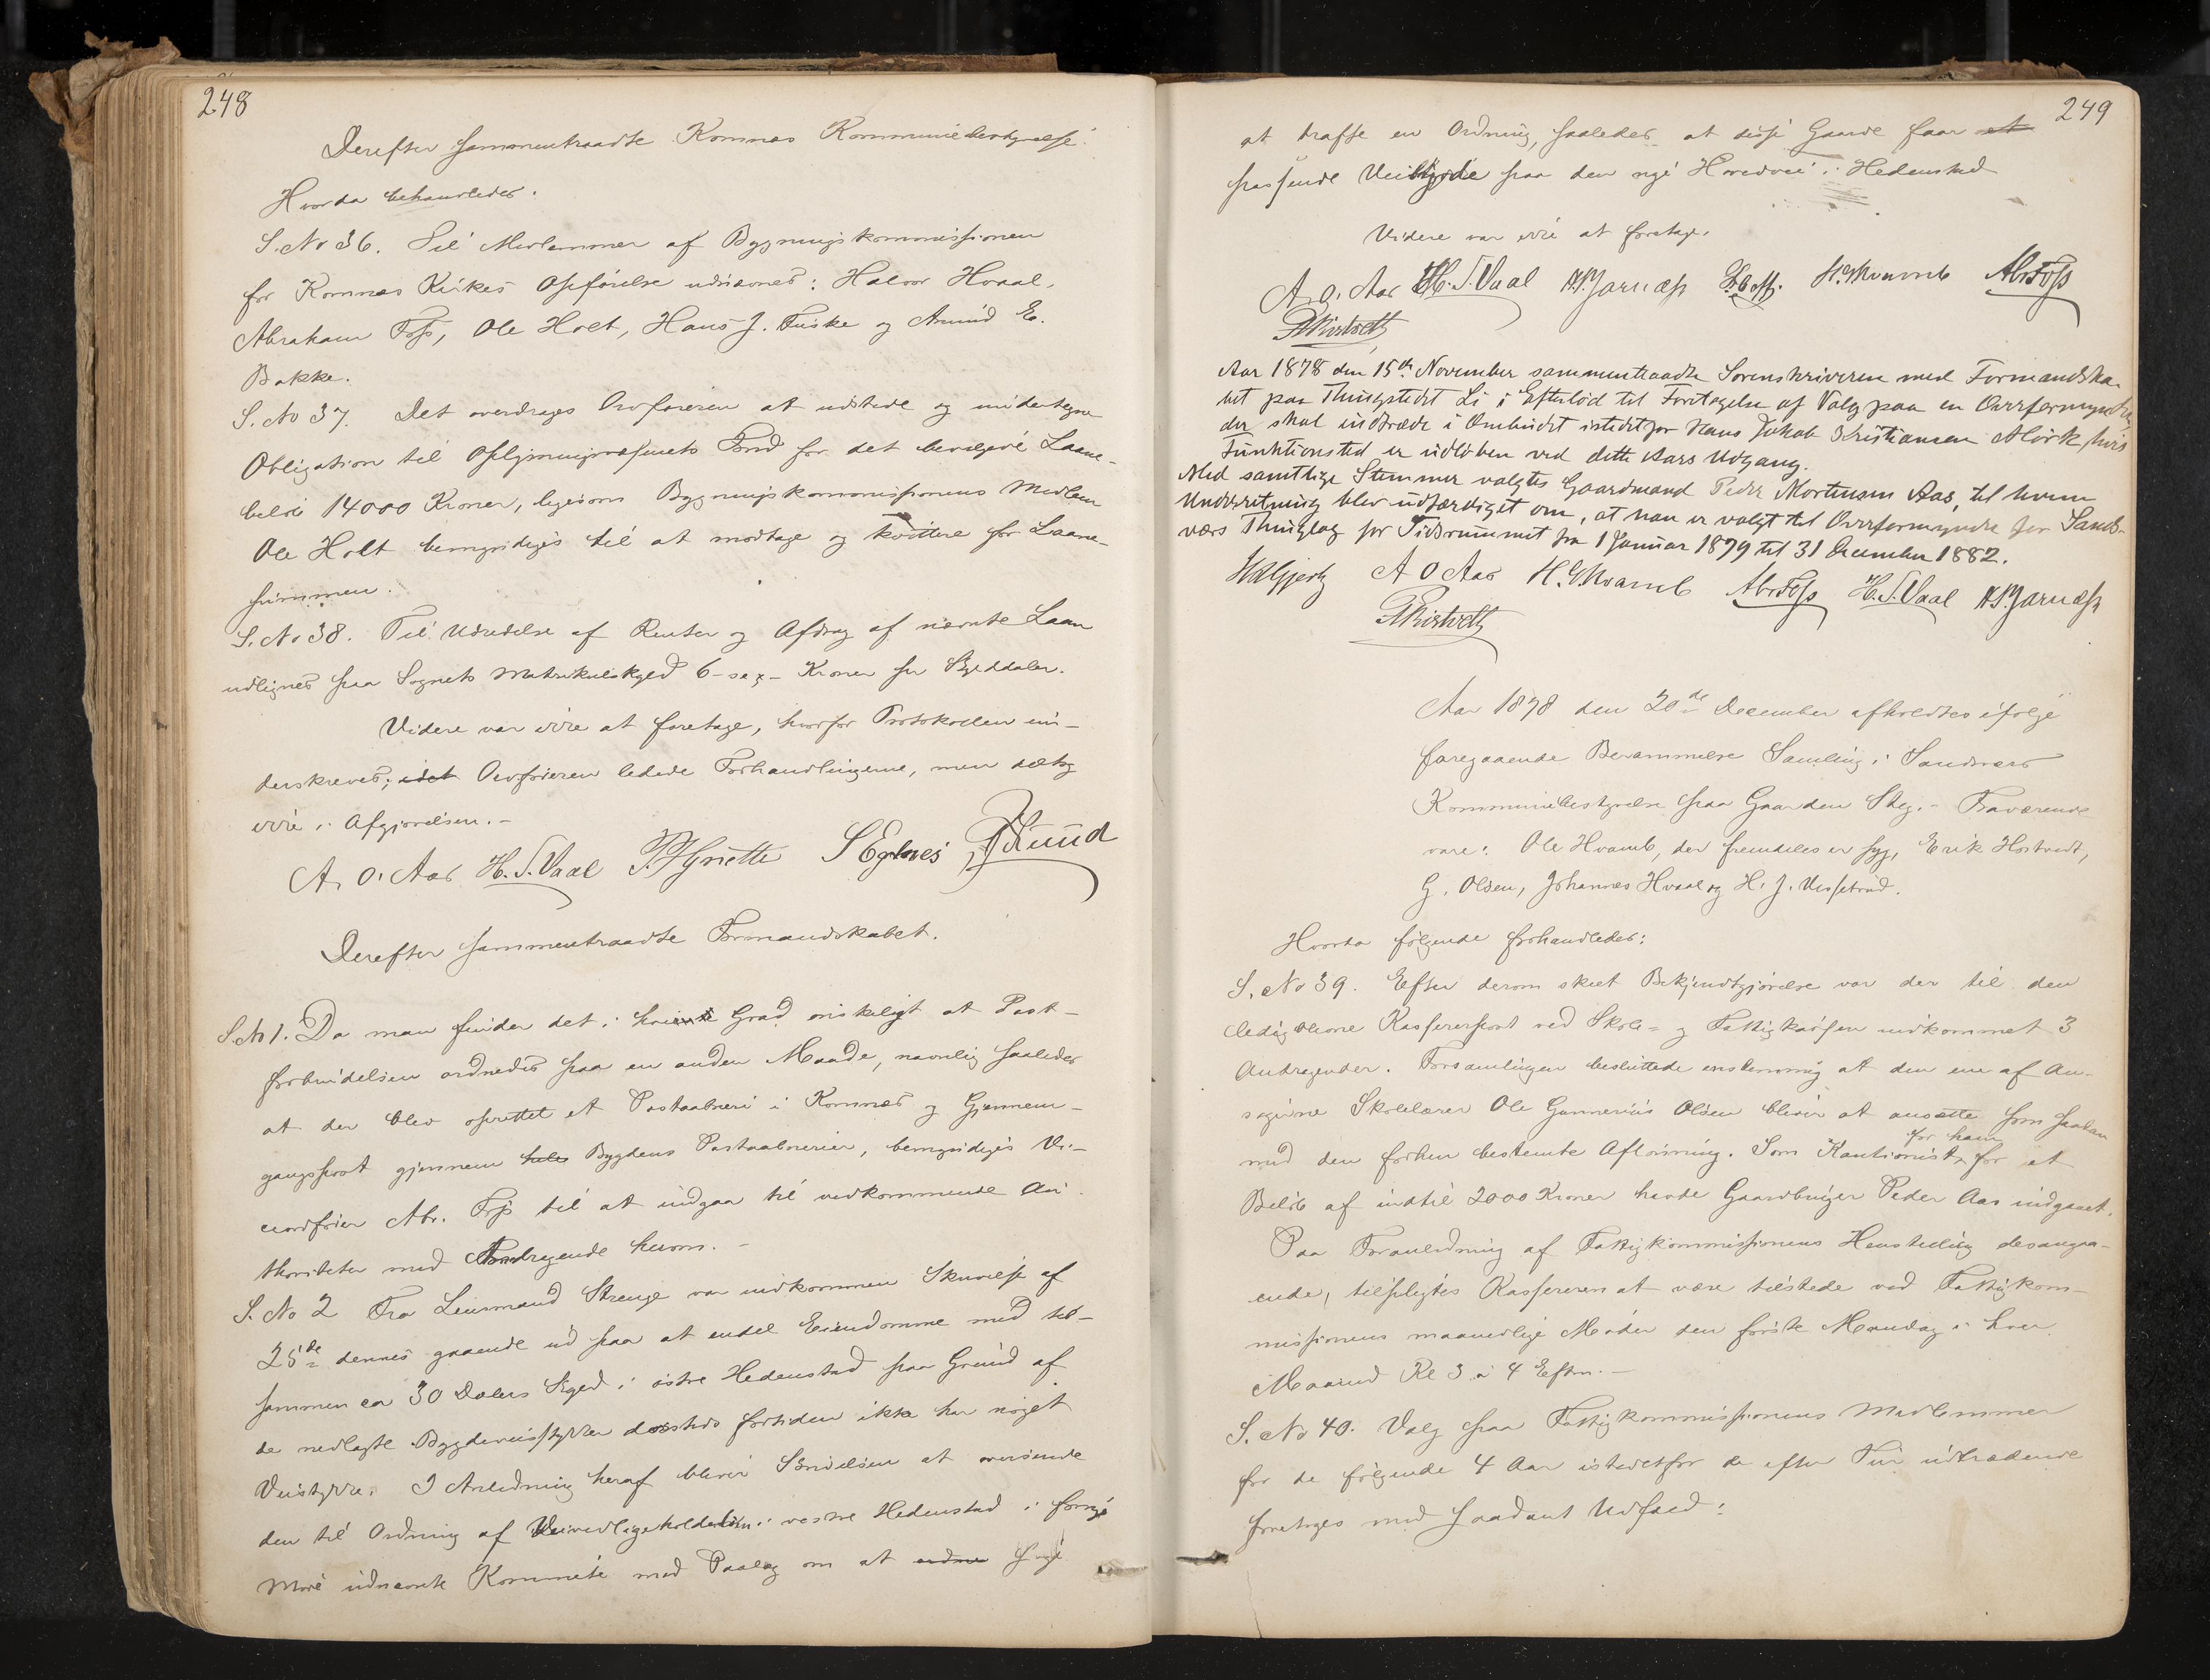 248
Derefter sammentraadte Komnes Kommunebestyrelse.
Hvorda behandledes:
S. No 36. Til Medlemmer af Bygningskommissionen
for Komnes Kirkes Opførelse udnævnes: Halvor Hvaal,
Abraham Foss, Ole Holt, Hans J. Tuske og Amund E.
Bakke.
S. No 37. Det overdrages Ordføreren at udstede og undertegne
Obligation til Oplysningsvæsenets Fond for det bevilgede Laane-
beløb 14000 Kroner, ligesom Bygningskommissionens Medlem
Ole Holt bemyndiges til at modtage og kvittere for Laane-
summen.
S. No 38. Til Udredelse af Renter og Afdrag af nævnte Laan
udlignes paa Sognets Matrikulskyld 6 - sex - Kroner pr Skylddaler.
Videre var ikke at foretage, hvorfor Protokollen un-
derskreves; idet Ordføreren ledede Forhandlingerne, men deltog
ikke i Afgjørelsen. -
A. O. Aas H. S. Vaal
Derefter sammentraadte Formandskabet.
S. No 1. Da man finder det i høieste Grad ønskeligt at Post-
forbindelsen ordnedes paa en anden Maade, navnlig saaledes
at der blev oprettet et Postaabneri i Komnes og Gjennem-
gangspost gjennem hele Bygdens Postaabnerier, bemyndiges Vi-
ceordfører Abr. Foss til at indgaa til vedkommende Au-
thoriteter med Andragende herom. -
S. No 2 Fra Lensmand Strenge var indkommen Skrivelse af
25de dennes gaaende ud paa at endel Eiendomme med til-
sammen ca 30 Dalers Skyld i østre Hedenstad paa Grund af
de nedlagte Bygdeveisstykker dersteds fortiden ikke har noget
Veistykke. I Anledning heraf bliver Skrivelsen at oversende
den til Ordning af Veivedligeholdelsen i vestre Hedenstad i forrige
Møde udnævnte Kommite med Paalæg om at ordne søge
249
at træffe en Ordning, saaledes at disse Gaarde faar et
passende Veistykke paa den nye Hovedvei i Hedenstad
Videre var ikke at foretage.
A. O. Aas H. S. Vaal H. G. Kvamb Abr Foss
Aar 1878 den 15de November sammentraadte Sorenskriveren med Formandska-
bet paa Thingstedet Li i Efterløb til Foretagelse af Valg paa en Overformynder,
der skal indtræde i Ombudet istedetfor Hans Jakob Kristiansen Mørk, hvis
Funktionstid er udløben ved dette Aars Udgang.
Med samtlige Stemmer valgtes Gaardmand Peder Mortensen Aas, til hvem
Underretning blev udfærdiget om, at han er valgt til Overformynder for Sands-
værs Thinglag for Tidsrummet fra 1 Januar 1879 til 31 December 1882.
A O Aas H. G. Kvamb Abr Foss H. S. Vaal
Aar 1878 den 20de December afholdtes ifølge
foregaaende Berammelse Samling i Sandsværs
Kommunebestyrelse paa Gaarden Steg. - Fraværende
vare: Ole Hvamb, der fremdeles er syg, Erik Hostvedt,
G. Olsen, Johannes Hvaal og H. J.
Hvorda følgende forhandledes:
S. No 39. Efter derom skeet Bekjendtgjørelse var der til den
ledigblevne Kassererpost ved Skole- og Fattigkassen indkommet 3
Andragender. Forsamlingen besluttede enstemmig at den ene af An-
søgerne Skolelærer Ole Gunnerius Olsen bliver at ansætte som saadan
med den forhen bestemte Aflønning. Som Kautionist for ham for et
Beløb af indtil 2000 Kroner havde Gaardbruger Peder Aas indgaaet.
Paa Foranledning af Fattigkommissionens Henstilling desangaa-
ende, tilpligtes Kassereren at være tilstede ved Fattigkom-
missionens maanedlige Møder den første Mandag i hver
Maaned Kl 3 à 4 Efterm. -
S. No 40. Valg paa Fattigkommissionens Medlemmer
for de følgende 4 Aar istedetfor de efter Tur udtrædende
foretoges med saadant Udfald: